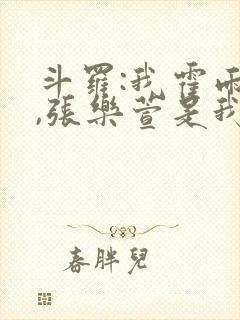 斗羅:我霍雨
,張樂萱是我
春胖兒